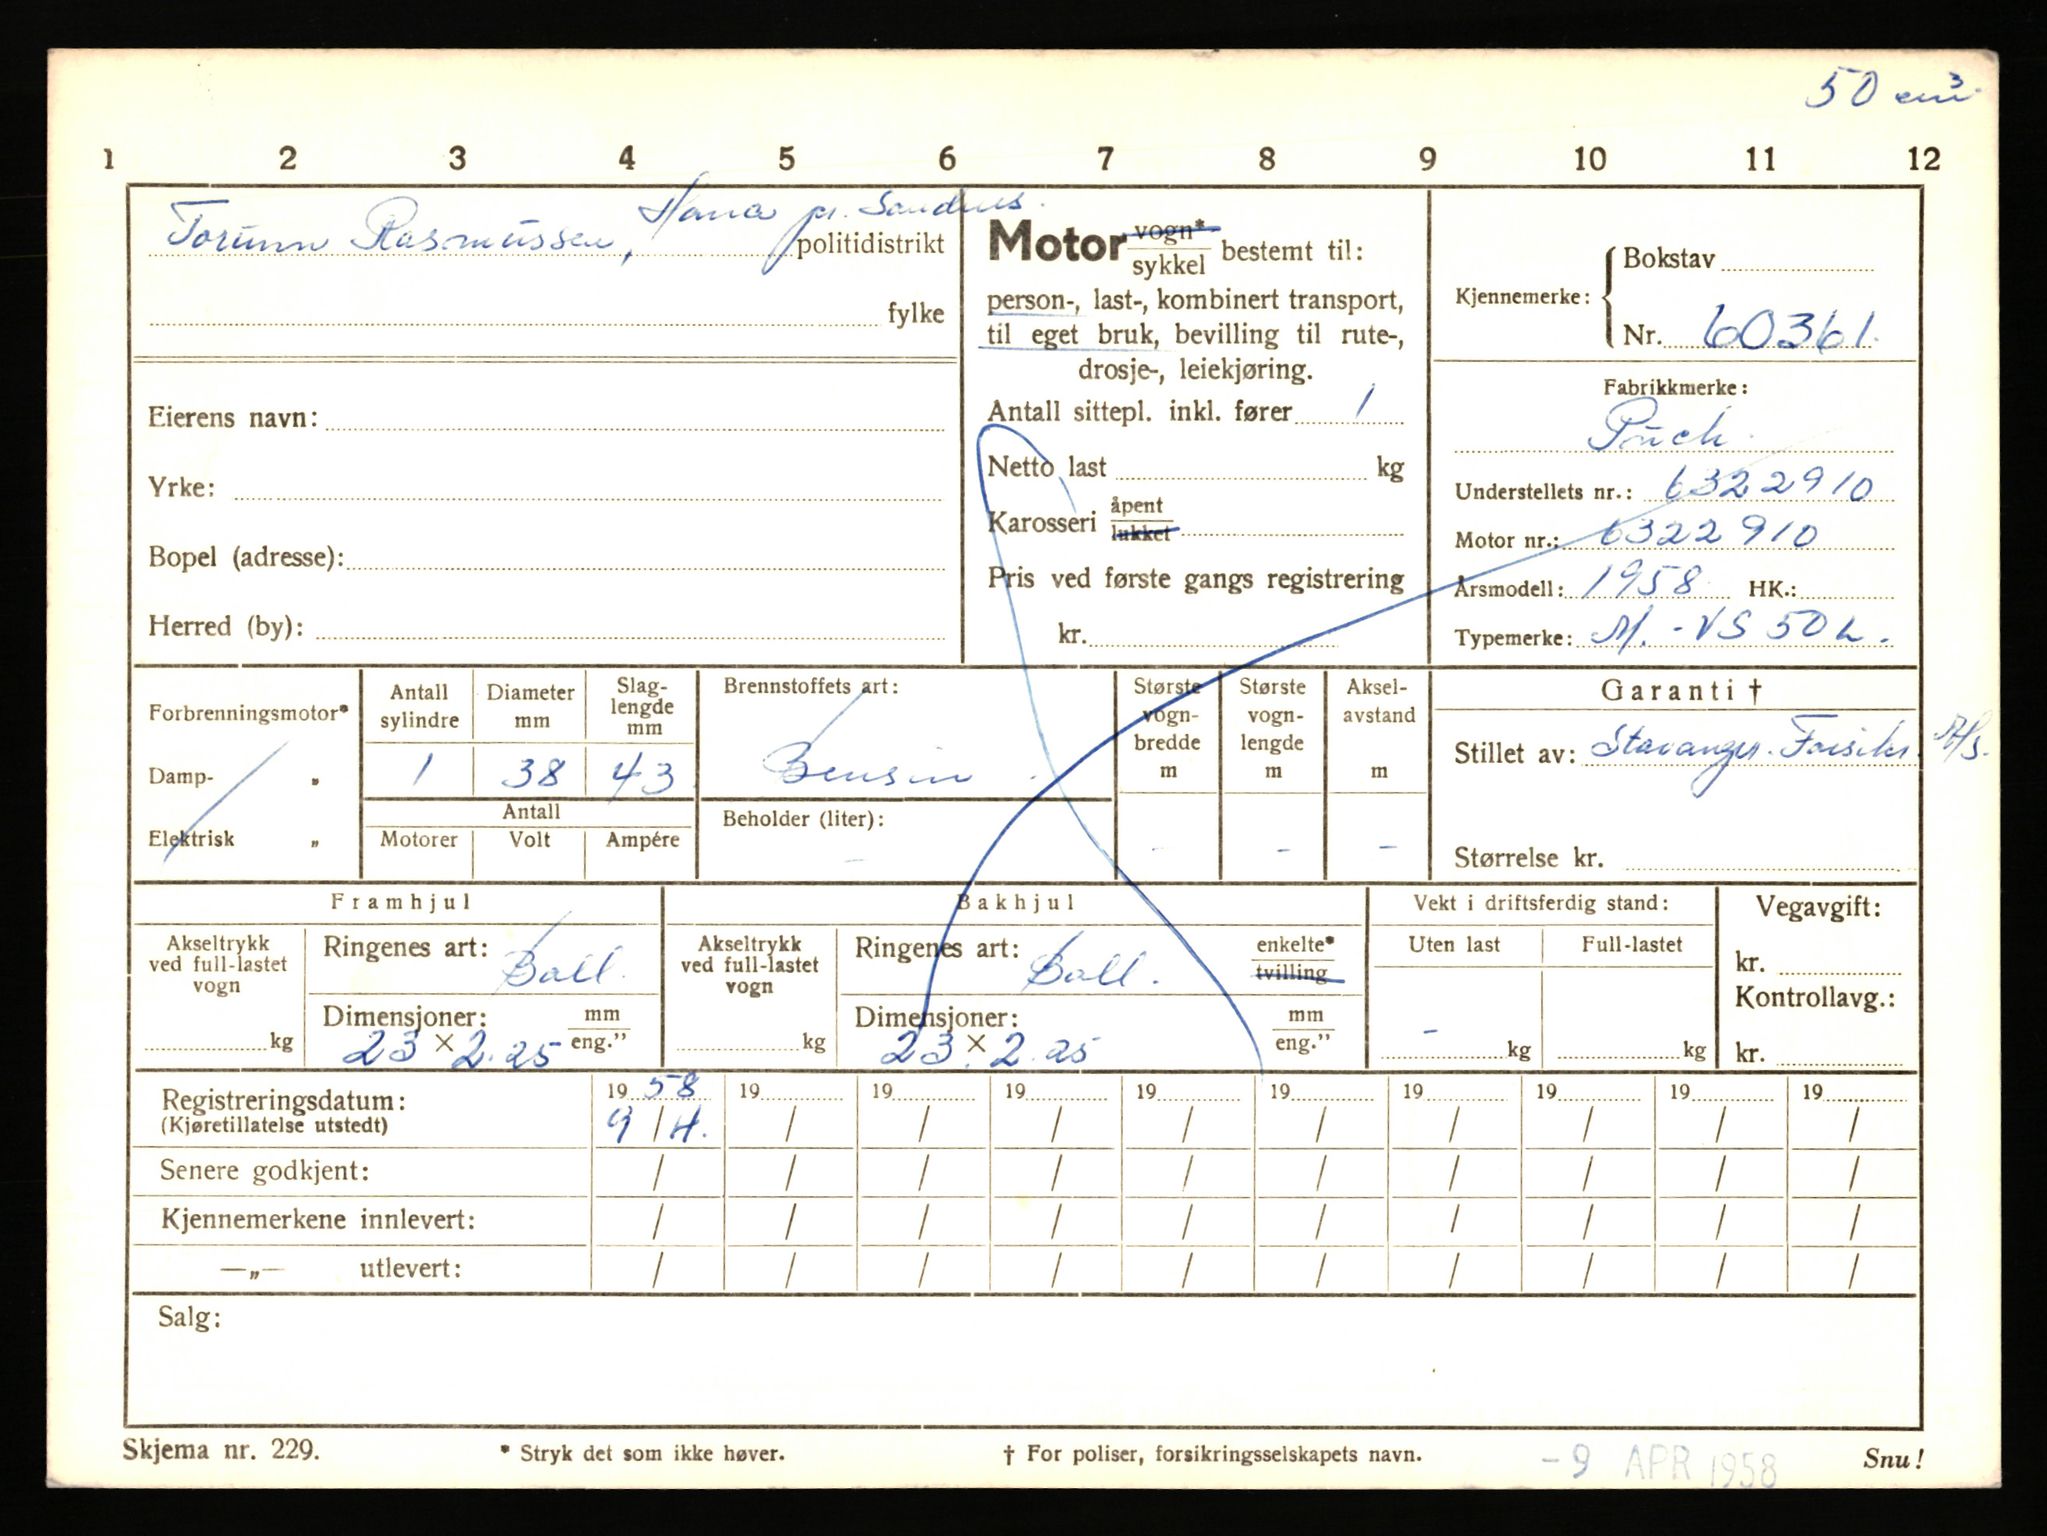 50 cm³
1 2 3 4 5 6 7 8 9 10 11 12
Torunn Rasmussen, Hana pr. Sandnes.
politidistrikt
fylke
Eierens navn:
Yrke:
Bopel (adresse):
Herred (by):
Motor vogn* sykkel bestemt til:
person-, last-, kombinert transport,
til eget bruk, bevilling til rute-,
drosje-, leiekjøring.
Antall sittepl. inkl. fører 1
Netto last kg
Karosseri åpent lukket
Pris ved første gangs registrering
kr.
Kjennemerke: Bokstav
Nr. 60361.
Fabrikkmerke:
Puch.
Understellets nr.: 6322910
Motor nr.: 6322910
Årsmodell: 1958 HK.:
Typemerke: M. - VS 50 L.
Forbrenningsmotor*
Damp- „
Elektrisk „
Antall sylindre
Diameter mm
Slag-lengde mm
1 38 43
Antall
Motorer Volt Ampére
Brennstoffets art:
Bensin
Beholder (liter):
–
Største vogn-bredde m
–
Største vogn-lengde m
–
Aksel-avstand m
–
Garanti †
Stillet av: Stavanger Forsikr. A/S.
Størrelse kr.
Framhjul
Akseltrykk ved full-lastet vogn
kg
Ringenes art: Ball.
Dimensjoner: mm eng.”
23 × 2.25
Bakhjul
Akseltrykk ved full-lastet vogn
kg
Ringenes art: Ball. enkelte* tvilling
Dimensjoner: mm eng.”
23 × 2.25
Vekt i driftsferdig stand:
Uten last Full-lastet
– kg kg
Vegavgift:
kr.
Kontrollavg.:
kr.
Registreringsdatum: 19 58 19 19 19 19 19 19 19 19 19
(Kjøretillatelse utstedt) 9 / 4. / / / / / / / / /
Senere godkjent: / / / / / / / / / /
Kjennemerkene innlevert: / / / / / / / / / /
—„— utlevert: / / / / / / / / / /
Salg:
Skjema nr. 229. * Stryk det som ikke høver. † For poliser, forsikringsselskapets navn. Snu!
-9 APR 1958